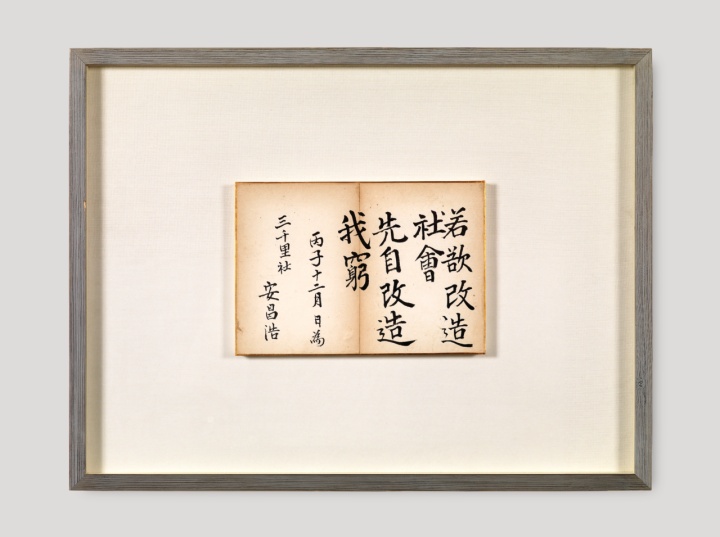 若欲改造
社會
先自改造
我窮
丙子十二月 日爲
三千里社
安昌浩